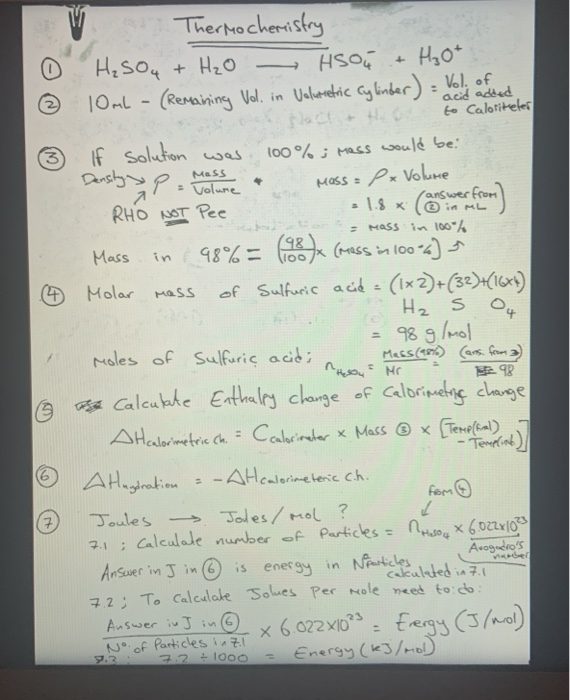 Thermochemistry
① H₂SO₄ + H₂O ⟶ HSO₄⁻ + H₃O⁺
② 10mL - (Remaining Vol. in Volumetric Cylinder) = Vol. of acid added to Calorimeter
③ If Solution was 100% ; mass would be:
Density → ρ = Mass / Volume
RHO NOT Pee
Mass = ρ × Volume
= 1.8 × (answer from ② in mL)
= mass in 100%
Mass in 98% = (98/100) × (mass in 100%)
④ Molar mass of Sulfuric acid = (1×2)+(32)+(16×4)
H₂ S O₄
= 98 g/mol
Moles of Sulfuric acid; n H₂SO₄ = Mass(98%) / Mr = (ans. from 3) / 98
⑤ Calculate Enthalpy change of Calorimetric change
ΔH calorimetric ch. = C calorimeter × Mass ③ × [Temp(final) - Temp(init)]
⑥ ΔH hydration = -ΔH calorimeteric ch.
⑦ Joules ⟶ Joles/mol ?
from ④
7.1 ; Calculate number of Particles = n H₂SO₄ × 6.022×10²³
Avogadro's number
Answer in J in ⑥ is energy in N particles calculated in 7.1
7.2 ; To Calculate Joules Per mole need to do:
Answer in J in ⑥ / Nº of Particles in 7.1 × 6.022×10²³ = Energy (J/mol)
7.3 : 7.2 ÷ 1000 = Energy (kJ/mol)